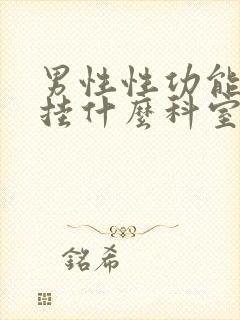 男性性功能
挂什麼科室
銘希